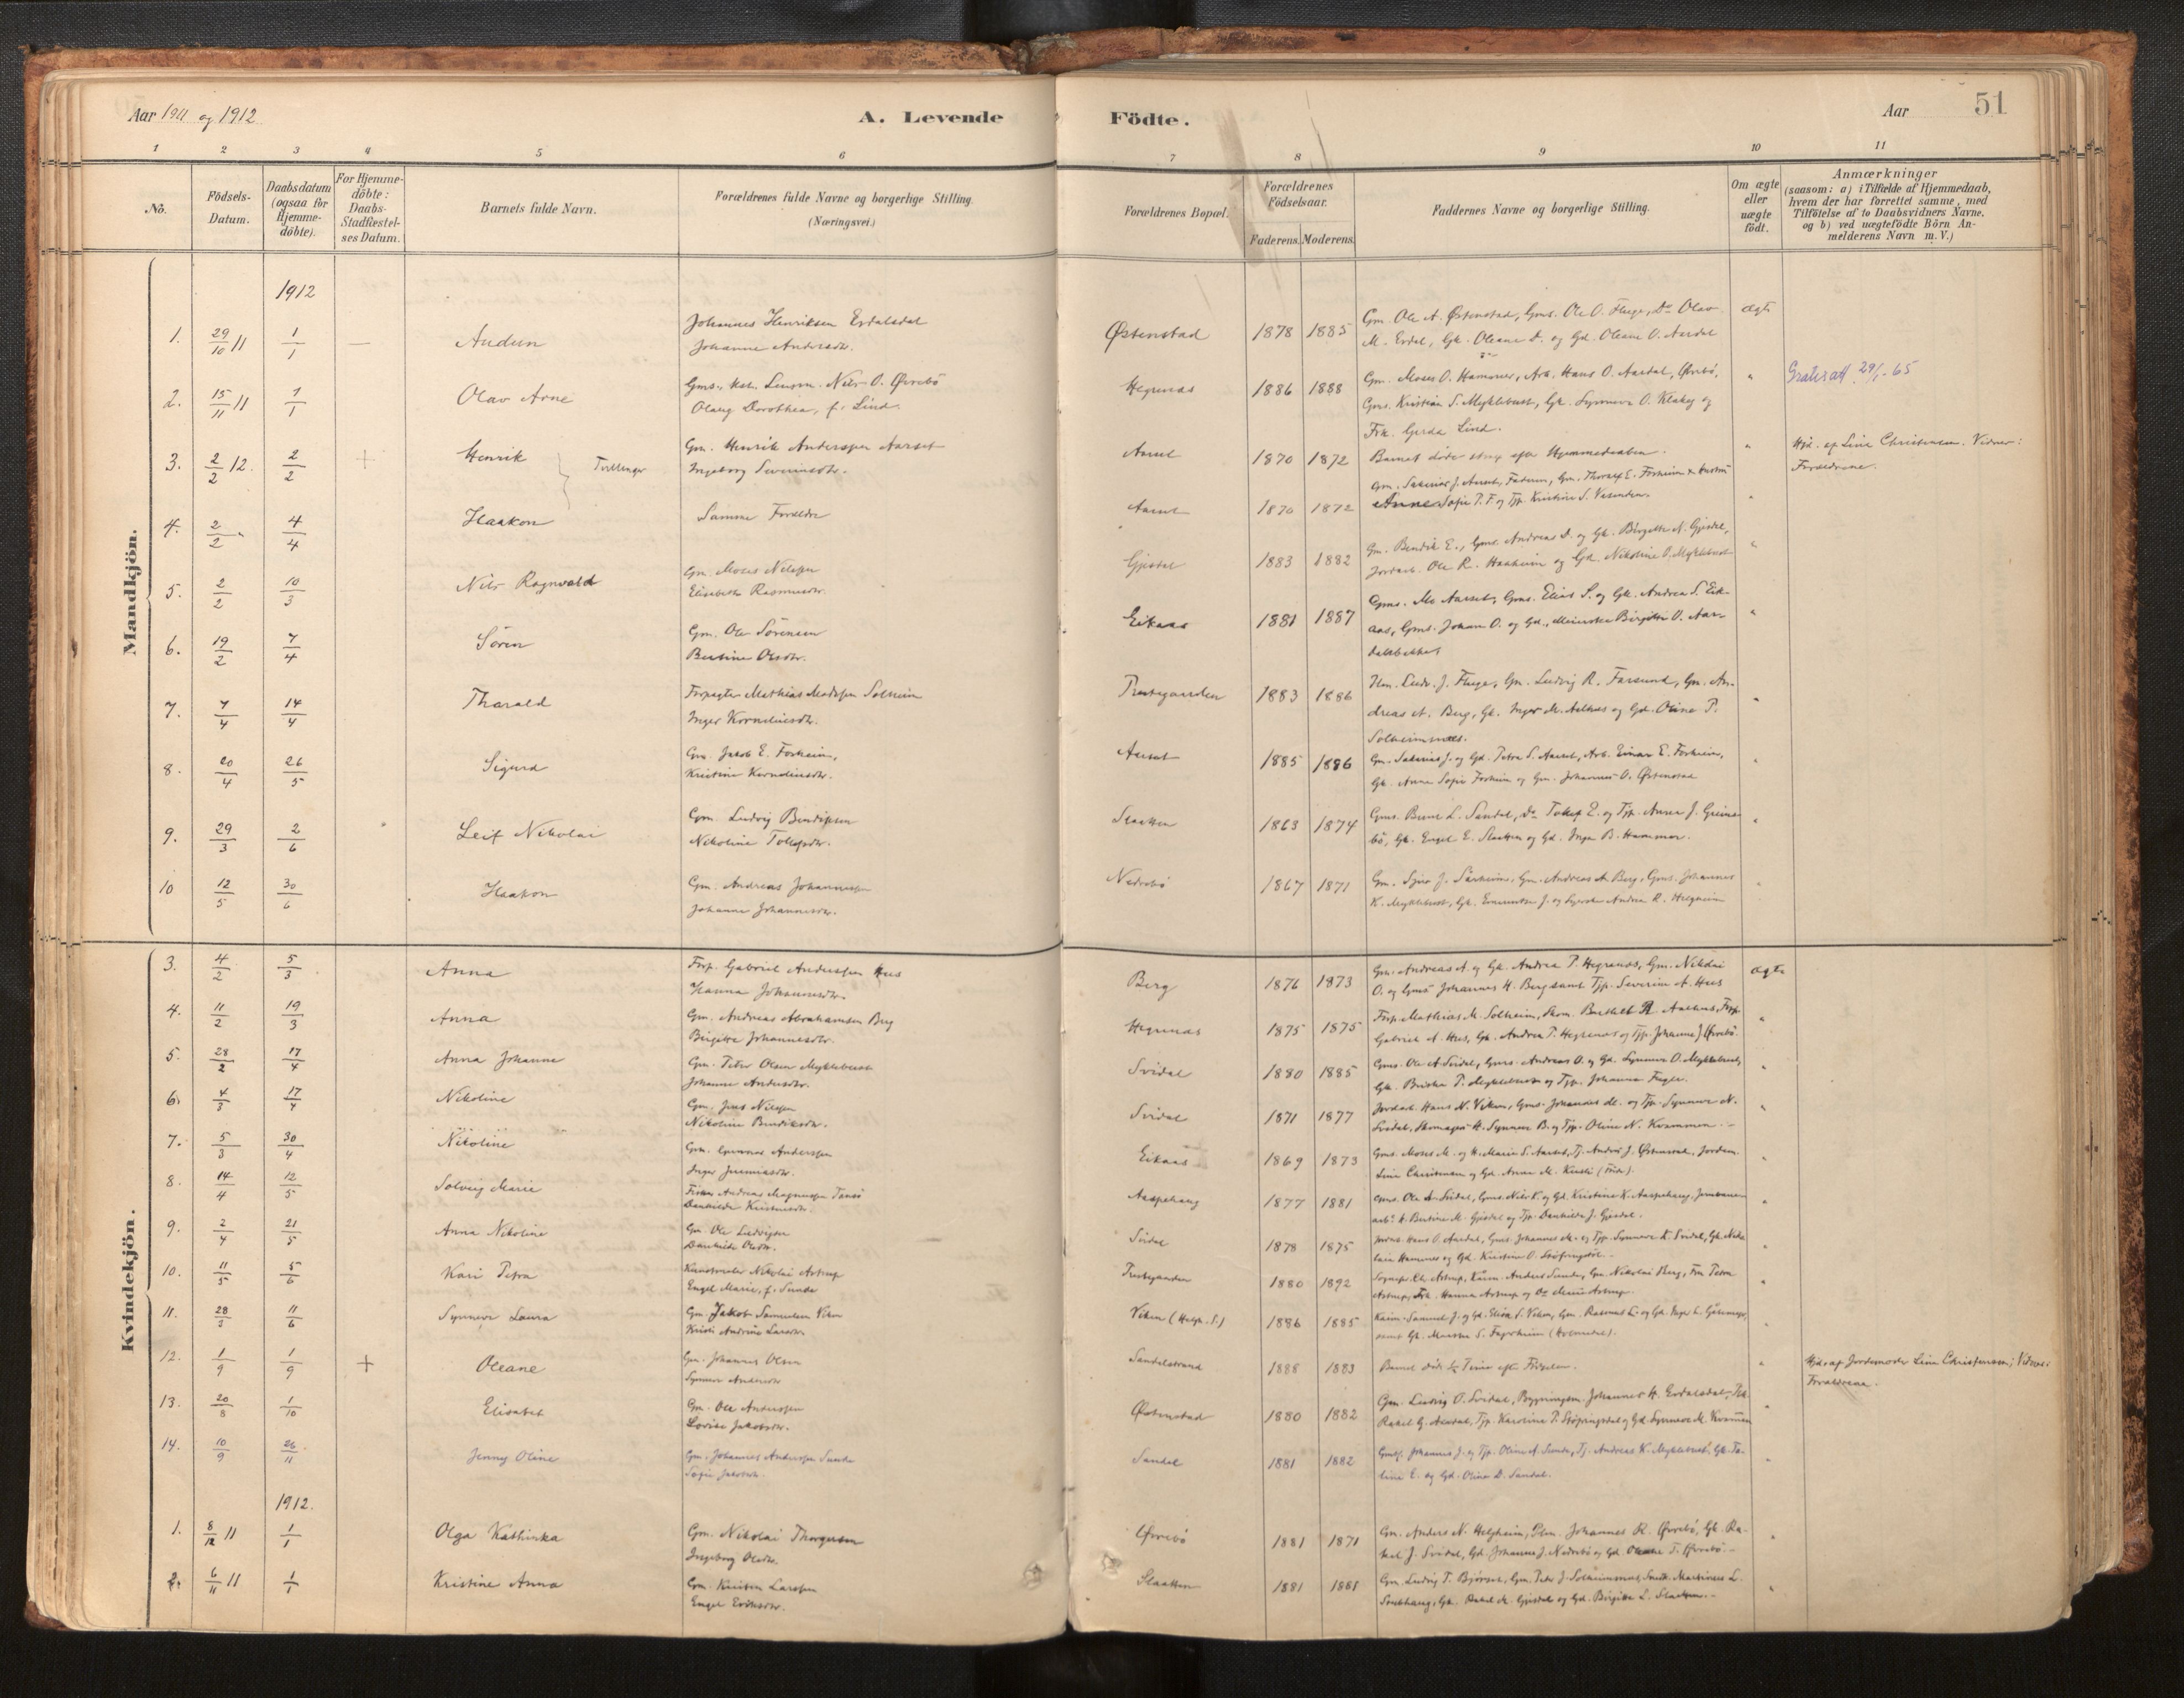 Aar 1911 og 1912
A. Levende Födte.
Aar
51
1 2 3 4 5 6 7 8 9 10 11
No.
Födsels-Datum.
Daabsdatum (ogsaa for Hjemme-döbte).
For Hjemme-döbte: Daabs-Stadfæstel-ses Datum.
Barnets fulde Navn.
Forældrenes fulde Navne og borgerlige Stilling. (Næringsvei.)
Forældrenes Bopæl.
Forældrenes Födselsaar.
Faderens. Moderens.
Faddernes Navne og borgerlige Stilling.
Om ægte eller uægte födt.
Anmærkninger
(saasom: a) i Tilfælde af Hjemmedaab,
hvem der har forrettet samme, med
Tilföielse af to Daabsvidners Navne.
og b) ved uægtefödte Börn An-
melderens Navn m.V.)
Mandkjön.
1912
1. 29/10 11 1/1 — Audun
Johannes Henriksen Erdalsdal
Johanne Andersdtr.
Østenstad 1878 1885
Gm. Ole A. Østenstad, Gms. Ole O. Fluge, Do Olav
M. Erdal, Gk. Oleane D. og Gd. Oleane O. Aardal
ægte
2. 15/11 11 1/1 Olav Arne
Nils O. Øvrebö
Olaug Dorothea, f. Lind.
Hegrenæs 1886 1888
Gm. Moses O. Hammer, Arb. Hans O. Aardal, Øvrebö,
Gms. Kristian S. Myklebust, Gk. Synneva O. Klakeg og
Frk. Gerda Lind.
"
29/1-65
3. 2/2 12. 2/2 + Henrik } Tvillinger
Gm. Henrik Anderssen Aarset
Ingeborg Severinsdtr.
Aarset 1870 1872
Barnet döde strax efter Hjemmedaaben.
"
Hjd. af Line Christensen. Vidner:
Forældrene.
4. 2/2 " 4/4 Haakon
Samme Forældre
Aarset 1870 1872
Gm. Sakarias J. Aarset, Faderen, Gm. Thoralf E. Forheim & Hustru
Anne Sofie T. F. og Tjp. Kristine S.
"
5. 2/2 10/3 Nils Ragnvald
Gm. Moses Nilssen
Elisabeth Rasmusdtr.
Gjesdal 1883 1882
Gm. Bendik E., Gms. Andreas D. og Gk. Birgitte N. Gjesdal,
Jordarb. Ole R. Haaheim og Gd. Nikoline O. Myklebust
"
6. 19/2 7/4 Sören
Gm. Ole Sörensen
Bertine Olsdtr.
Eikaas 1881 1887
Gms. Aarset, Gms. Elias S. og Gk. Andrea S. Eik-
aas, Gms. Johan O. og Gd., Meierske Birgitte O. Aar-
dalsbakke
"
7. 7/4 14/4 Tharald
Forpagter Mathias Madssen Solheim
Inger Korneliusdtr.
Prestegaarden 1883 1886
J. Fluge, Gm. Ludvig R. Farsund, Gm. An-
dreas A. Berg, Gk. Inger M. Aalhus og Gd. Oline P.
Solheimsnæs.
"
8. 20/4 26/5 Sigurd
Gm. Jakob E. Forheim,
Kristine Korneliusdtr.
Aarset 1885 1886
Gm. Sakarias J. og Gd. Petra S. Aarset, Arb. Einar E. Forheim,
Gk. Anna Sofie Forheim og Gm. Johannes O. Østenstad
"
9. 29/3 2/6 Leif Nikolai
Gm. Ludvig Bendixsen
Nikoline Tollefsdtr.
Slaatten 1863 1874
Gms. L. Sandal, Do Tollef E. og Tjp. Anna J. Greine-
bö, Gk. Engel E. Slaatten og Gd. Inga B. Hammer.
"
10 12/5 30/6 Haakon
Gm. Andreas Johannessen
Johanne Johannesdtr.
Nedrebö 1867 1871
Gm. J. Sårheim, Gm. Andreas A. Berg, Gms. Johannes
K. Myklebust, Gk. J. og Syerske Andrea R. Helgheim
"
Kvindekjön.
3. 4/2 5/3 Anna
Forp. Gabriel Anderssen Hus
Hanna Johannesdtr.
Berg 1876 1873
Gm. Andreas A. og Gk. Andrea P. Hegrenæs, Gm. Nikolai
O. og Gms. Johannes H. Berg samt Tjp. Severine A. Hus
ægte
4. 11/2 19/3 Anna
Gm. Andreas Abrahamsen Berg
Birgitte Johannesdtr.
Hegrenæs 1875 1875
Forp. Mathias M. Solheim, Skom. Berthel R. Aalhus, Forp.
Gabriel A. Hus, Gk. Andrea P. Hegrenæs og Tjp. Johanne J. Øvrebö.
"
5. 28/2 17/4 Anna Johanne
Gm. Peter Olsen Myklebust
Johanne Andersdtr.
Svidal 1880 1885
Gms. Ole A. Svidal, Gms. Andreas O. og Gd. Synneve O. Myklebust,
Gk. P. Myklebust og Tjp. Johanna Fugle.
"
6. 4/3 17/4 Nikoline
Gm. Jens Nilssen
Nikoline Bendiksdtr.
Svidal 1871 1877
Jordarb. Hans N. Viken, Gms. Johannes M. og Tjp. Synneve N.
Svidal, Skomager H. Synneve B. og Tjp. Oline N. Kvammen.
"
7. 5/3 30/4 Nikoline
Gm. Gunnar Anderssen
Inger Jeremiasdtr.
Eikaas 1869 1873
Gms. Moses M. og H. Marie S. Aarset, Tj. Anders J. Østenstad, Jordem.
Line Christensen og Gd. Anna M.
"
8. 14/4 12/5 Solveig Marie
Fisker Andreas Magnussen Tansö
Danhilda Kristensdtr.
Aaspehaug 1877 1881
Gms. Ole A. Svidal, Gms. Nils K. og Gd. Kristine K. Aaspehaug, Jernbane-
arb. H. Bertine M. Gjesdal og Tjp. Danhilda J. Gjesdal.
"
9. 2/4 21/5 Anna Nikoline
Gm. Ole Ludvigsen
Danhilda Olsdtr.
Svidal 1878 1875
Hans O. Aardal, Gms. Johannes M. og Tjp. Synneve K. Svidal, Gk. Niko-
laia Hammer og Gd. Kristine O.
"
10. 11/5 5/6 Kari Petra
Kunstmaler Nikolai Astrup
Engel Marie, f. Sunde
Prestegaarden 1880 1892
Sognepr. Chr. Astrup, Anders Sunde, Gm. Nikolai Berg, Fru Petra
Astrup, Frk. Hanna Astrup og Do Marie Astrup.
"
11. 28/3 11/6 Synneve Laura
Gm. Jakob Samuelsen Viken
Kristi Andrine Larsdtr.
Viken (Helgh. S.) 1886 1885
Samuel J. og Gd. Elisa S. Viken, Gm. Rasmus L. og Gd. Inger L.
samt Gk. S.
"
12. 1/9 1/9 + Oleane
Gm. Johannes Olsen
Synneve Andersdtr.
Sandalstrand 1888 1883
Barnet döde ½ Time efter Födselen.
"
Hjd. af Jordemoder Line Christensen; Vidner:
Forældrene.
13. 20/8 1/10 Elisabet
Gm. Ole Anderssen
Lovise Jakobsdtr.
Østenstad 1880 1882
Gm. Ludvig O. Svidal, Bygningsm. Johannes H. Erdalsdal,
Rakel G. Aardal, Tjp. Karoline P. og Gd. Synneve M. Kvammen
"
14. 10/9 26/11 Jenny Oline
Gm. Johannes Anderssen Sunde
Sofie Jakobsdtr.
Sandal 1881 1882
Johannes J. og Tjp. Oline A. Sunde, Tj. Andreas K. Myklebust, Gk. Ta-
line E. og Gd. Oline D. Sandal.
"
1912.
1. 8/12 11 1/1 Olga Kathinka
Gm. Nikolai Thorgersen
Ingeborg Olsdtr.
Øvrebö 1881 1871
Gm. Anders N. Helgheim, Johannes R. Øvrebö, Gk. Ra-
kel J. Svidal, Gd. Johanne J. Nedrebö og Gd. Oleane T. Øvrebö.
"
2. 6/11 11 1/1 Kristine Anna
Gm. Kristen Larssen
Engel Eriksdtr.
Slaatten 1881 1881
Gm. Ludvig T. Bjørset, Gm. Peter J. Solheimsnæs, Smed Martinus L.
Gk. Rakel M. Gjesdal og Gd. Birgitte L. Slaatten.
"